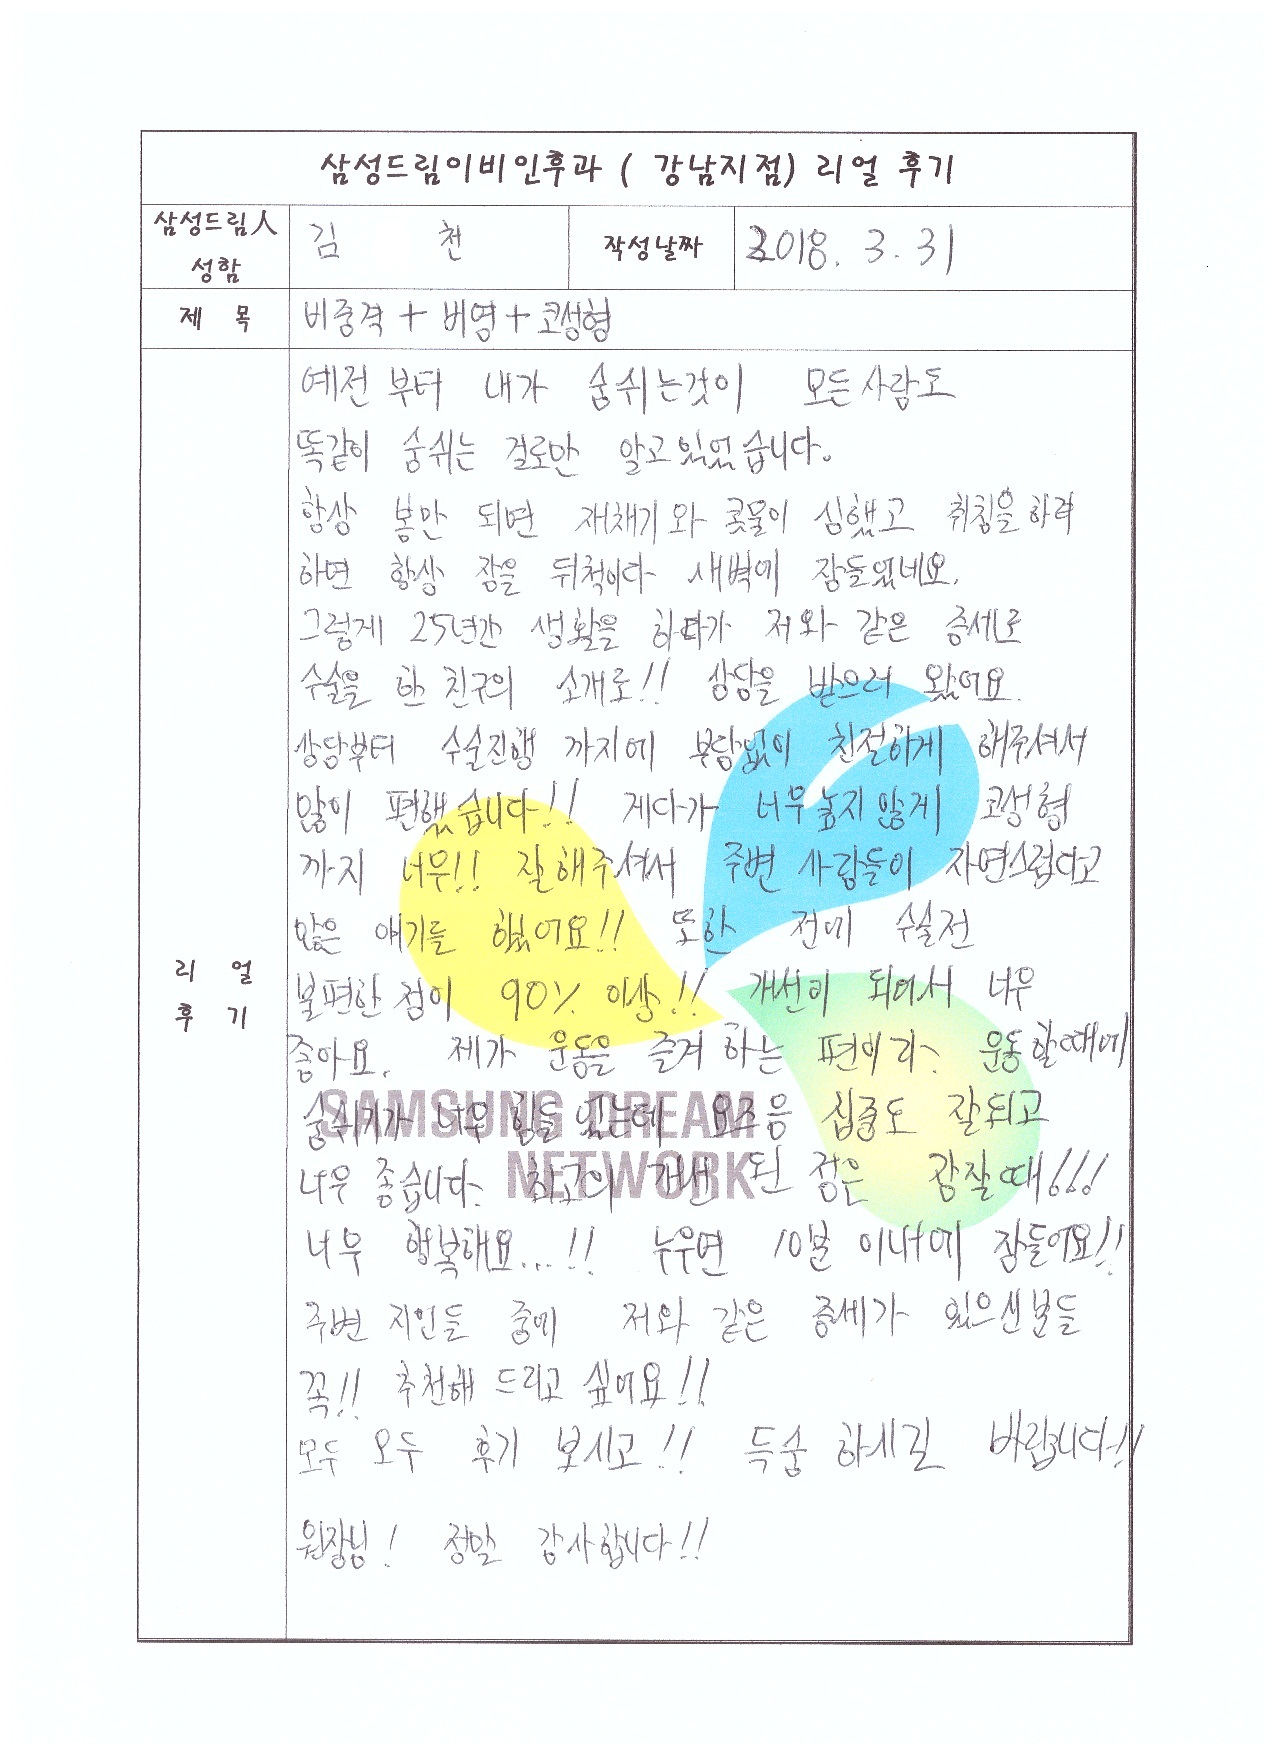 삼성드림이비인후과 ( 강남지점) 리얼 후기
삼성드림人 성함
김 천
작성날짜
2018. 3. 31
제 목
비중격 + 비염 + 코성형
리 얼 후 기
예전 부터 내가 숨쉬는것이 모든사람도
똑같이 숨쉬는 걸로만 알고있었습니다.
항상 봄만 되면 재채기와 콧물이 심했고 취침을하려
하면 항상 잠을 뒤척이다 새벽에 잠들었네요.
그렇게 25년간 생활을 하다가 저와 같은 증세로
수술을 한 친구의 소개로!! 상담을 받으러 왔어요.
상담부터 수술진행 까지에 부담없이 친절하게 해주셔서
많이 편했습니다!! 게다가 너무높지않게 코성형
까지 너무!! 잘해주셔서 주변 사람들이 자연스럽다고
많은 얘기를 했어요!! 또한 전에 수술전
불편한점이 90% 이상!! 개선이 되어서 너무
좋아요. 제가 운동을 즐겨 하는 편이라 운동할때에
숨쉬기가 너무 힘들었는데 요즈음 집중도 잘되고
너무 좋습니다. 최고의 개선 된 점은 잠잘때!!!
너무 행복해요...!! 누우면 10분 이내에 잠들어요!!
주변 지인들 중에 저와 같은 증세가 있으신분들
꼭!! 추천해 드리고 싶어요!!
모두 모두 후기 보시고!! 득숨 하시길 바랍니다!!
원장님! 정말 감사합니다!!
SAMSUNG DREAM
NETWORK